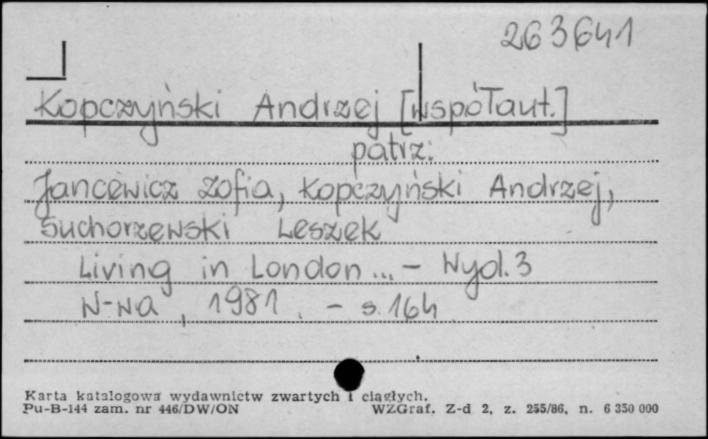 263641
Kopczyński Andrzej [współaut.]
patrz:
Jancewicz Zofia, Kopczyński Andrzej,
Suchorzewski Leszek
Living in London... - Wyd. 3
W-wa, 1981. - s. 164
Karta katalogowa wydawnictw zwartych i ciągłych.
Pu-B-144 zam. nr 446/DW/ON WZGraf. Z-d 2, z. 255/86, n. 6 350 000